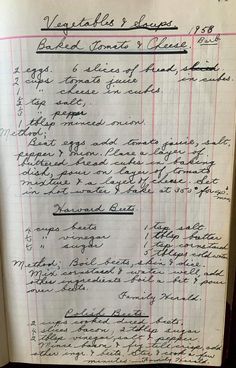 Vegetables & Soups
1958
Baked Tomato & Cheese
2 eggs. 6 slices of bread,
2 cups tomato juice in cubes.
1 " cheese in cubes.
½ tsp salt,
" pepper
1 tblsp minced onion.
Method;
Beat eggs add tomato juice, salt,
pepper & onion. Place a layer of
buttered bread cubes in baking
dish, pour on layer of tomato
mixture & a layer of cheese. Set
in hot water & bake at 350° for
min
Harvard Beets
4 cups beets 1 tsp salt
½ " vinegar 1 tblsp butter
½ " sugar 1 tsp cornstarch
5 tblsps cold water
Method; Boil beets, skin & dice.
Mix cornstarch & water well, add
other ingredients boil a bit & pour
over beets.
Family Herald.
Polish Beets
2 cups cooked diced beets,
2 slices bacon, 2 tblsp sugar
2 tblsp vinegar, salt & pepper
Mince bacon & fry till crisp, add
other ingr & beets. Stir & cook a few
minutes Family Herald.